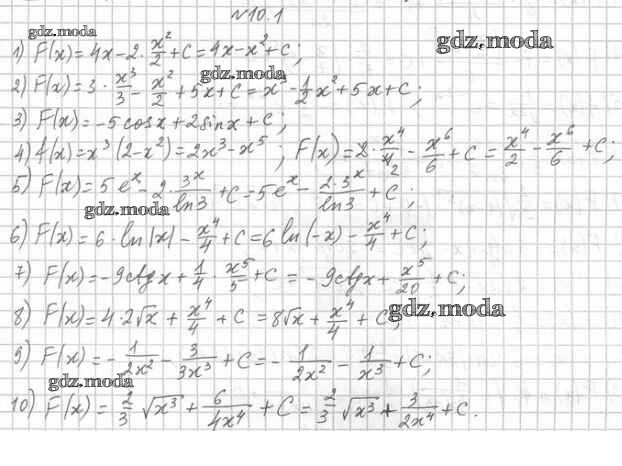 №10.1
gdz.moda
gdz.moda
1) F(x) = 4x - 2 · x²/2 + C = 4x - x² + C;
gdz.moda
2) F(x) = 3 · x³/3 - x²/2 + 5x + C = x³ - 1/2 x² + 5x + C;
3) F(x) = -5cosx + 2sinx + C;
4) f(x) = x³(2-x²) = 2x³ - x⁵; F(x) = 2 · x⁴/4 - x⁶/6 + C = x⁴/2 - x⁶/6 + C;
5) F(x) = 5eˣ - 2 · 3ˣ/ln3 + C = 5eˣ - 2·3ˣ/ln3 + C;
gdz.moda
6) F(x) = 6 · ln|x| - x⁴/4 + C = 6ln(-x) - x⁴/4 + C;
7) F(x) = -9ctgx + 1/4 · x⁵/5 + C = -9ctgx + x⁵/20 + C;
8) F(x) = 4·2√x + x⁴/4 + C = 8√x + x⁴/4 + C;
gdz.moda
9) F(x) = - 1/2x² - 3/3x³ + C = - 1/2x² - 1/x³ + C;
gdz.moda
10) F(x) = 2/3 √x³ + 6/4x⁴ + C = 2/3 √x³ + 3/2x⁴ + C.